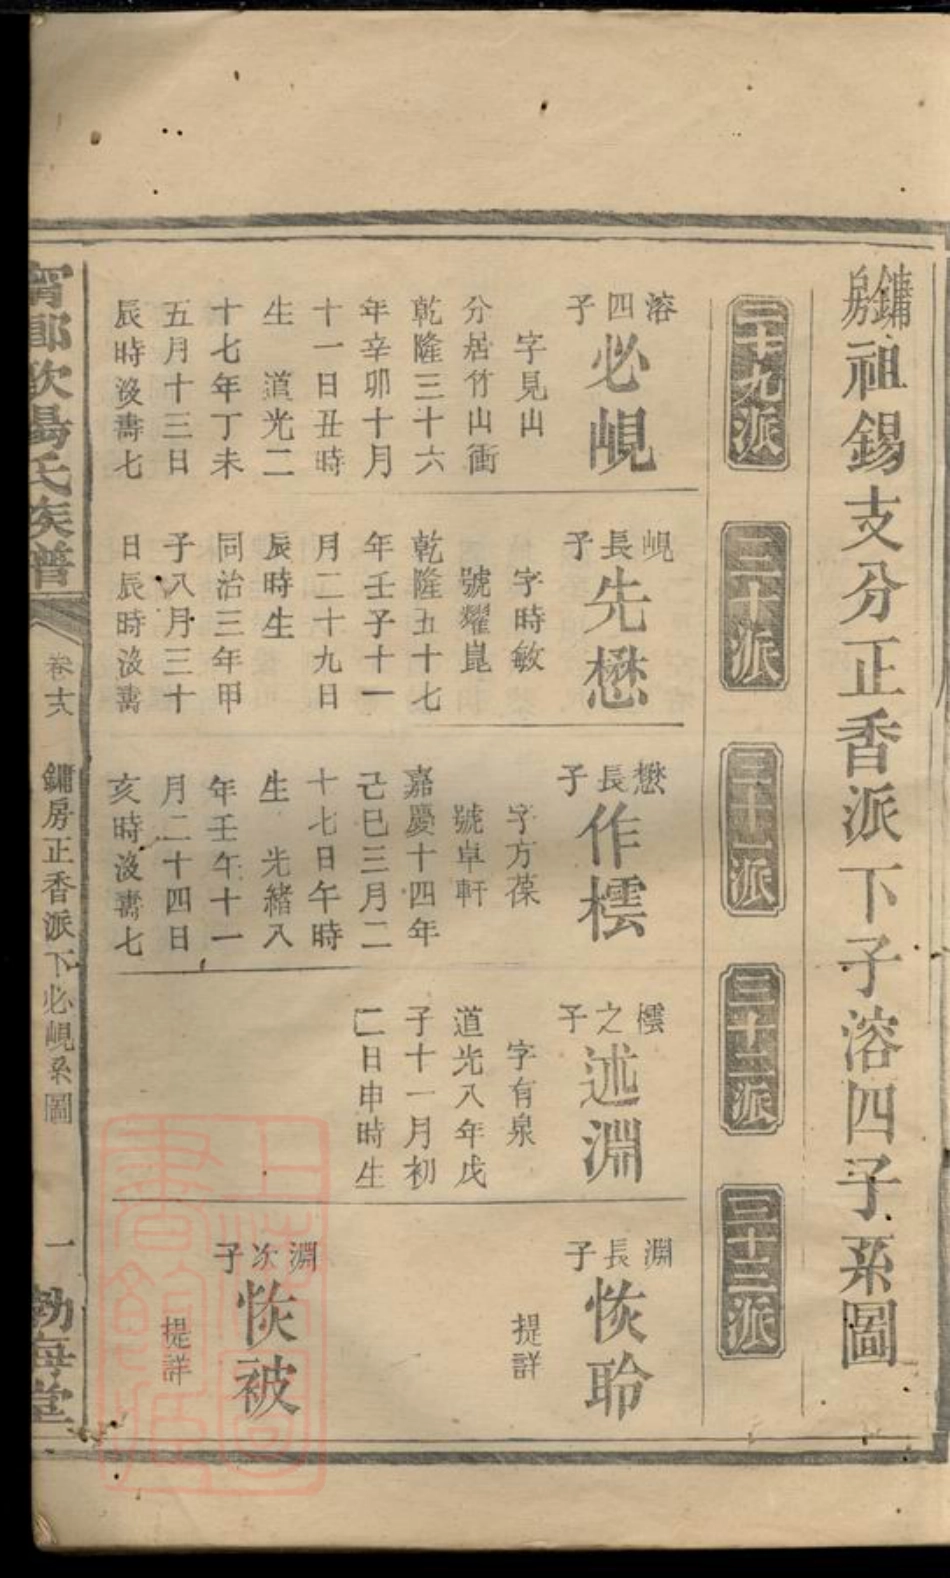 鏞房祖錫支分正香派下子溶四子系圖
二十九派
三十派
三十一派
三十二派
三十三派
溶四子
必峴
字見山
分居竹山衝
乾隆三十六
年辛卯十月
十一日丑時
生 道光二
十七年丁未
五月十三日
辰時沒壽七
峴長子
先懋
字時敏
號耀崑
乾隆五十七
年壬子十一
月二十九日
辰時生
同治三年甲
子八月三十
日辰時沒壽
懋長子
作橒
字方葆
號卓軒
嘉慶十四年
己巳三月二
十七日午時
生 光緒八
年壬午十一
月二十四日
亥時沒壽七
橒之子
述淵
字有泉
道光八年戊
子十一月初
二日申時生
淵長子
恢聆
提詳
淵次子
恢被
提詳
氏族譜
卷
鏞房正香派下必峴系圖
一
勃海堂
上海圖書館藏